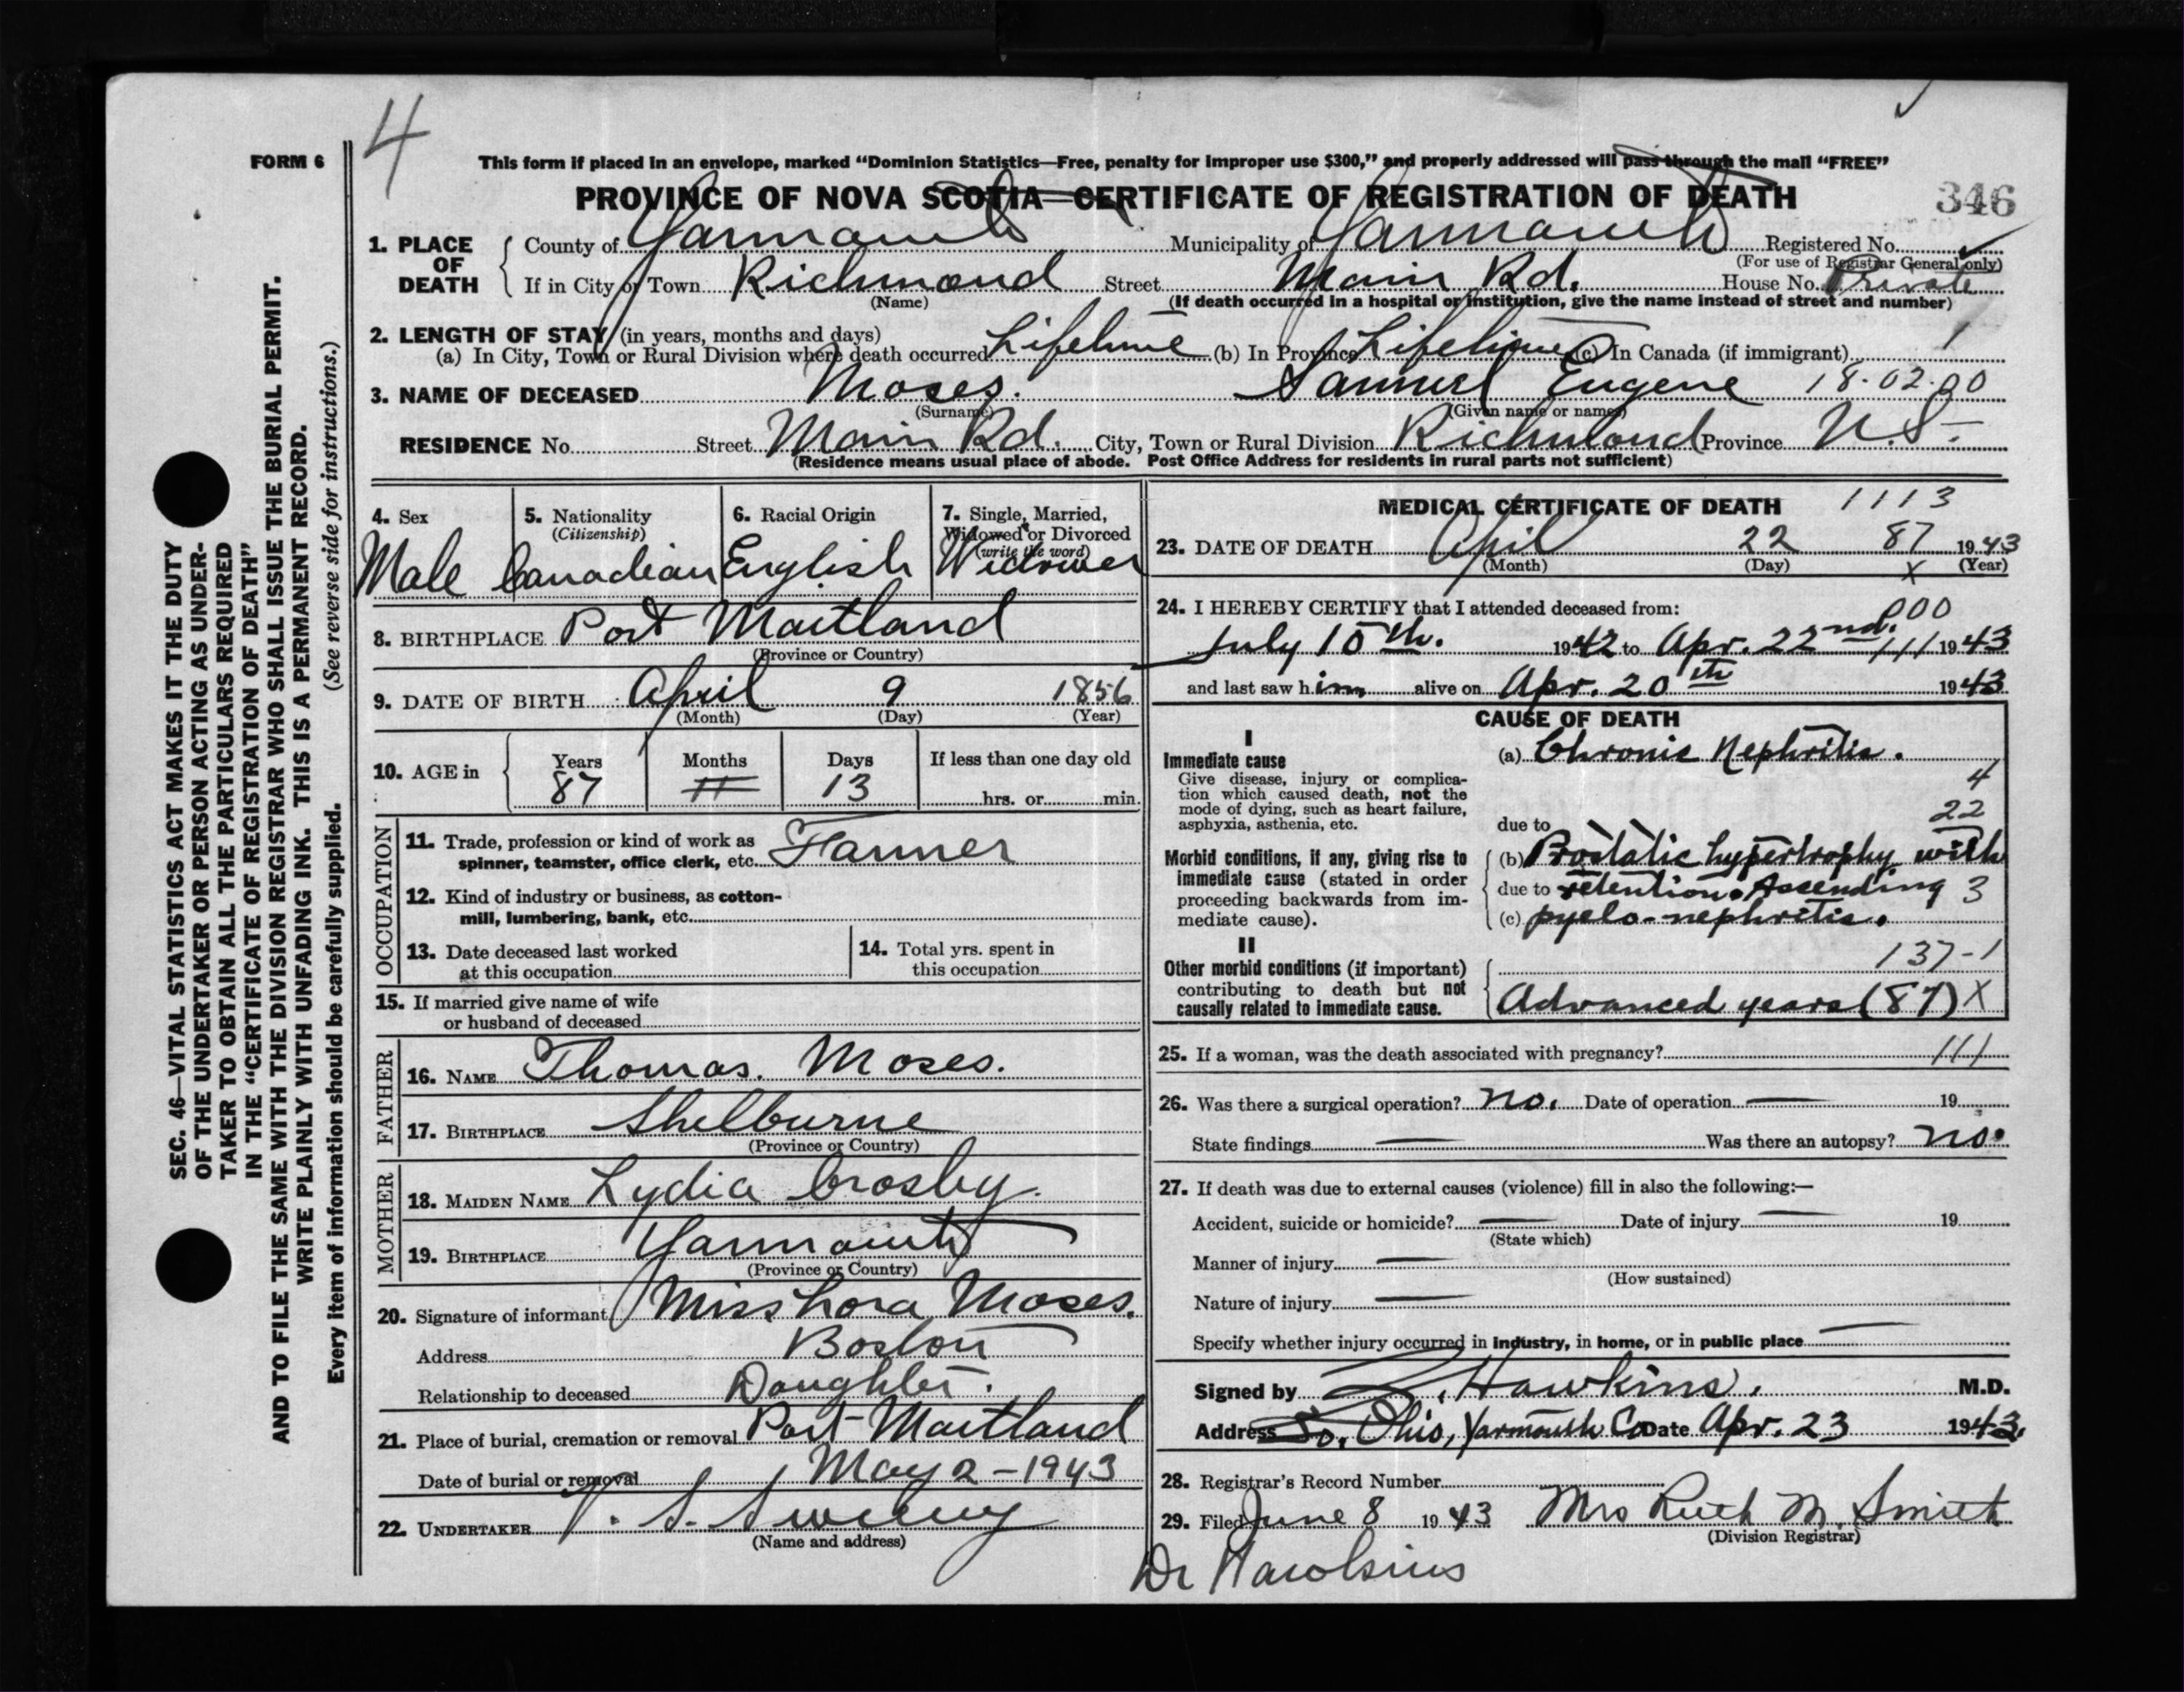 4
FORM 6
This form if placed in an envelope, marked "Dominion Statistics—Free, penalty for improper use $300," and properly addressed will pass through the mail "FREE"
PROVINCE OF NOVA SCOTIA—CERTIFICATE OF REGISTRATION OF DEATH
346
1. PLACE OF DEATH County of Yarmouth Municipality of Yarmouth Registered No.
(For use of Registrar General only)
If in City or Town Richmond Street Main Rd. House No. Private
(Name) (If death occurred in a hospital or institution, give the name instead of street and number)
2. LENGTH OF STAY (in years, months and days)
(a) In City, Town or Rural Division where death occurred Lifetime (b) In Province Lifetime (c) In Canada (if immigrant)
3. NAME OF DECEASED Moses. Samuel Eugene 18-02-00
(Surname) (Given name or names)
RESIDENCE No. Street Main Rd. City, Town or Rural Division Richmond Province N.S.
(Residence means usual place of abode. Post Office Address for residents in rural parts not sufficient)
4. Sex 5. Nationality 6. Racial Origin 7. Single, Married,
(Citizenship) Widowed or Divorced
(write the word)
Male Canadian English Widower
8. BIRTHPLACE Port Maitland
(Province or Country)
9. DATE OF BIRTH April 9 1856
(Month) (Day) (Year)
10. AGE in Years Months Days If less than one day old
87 11 13 hrs. or min.
OCCUPATION
11. Trade, profession or kind of work as
spinner, teamster, office clerk, etc. Farmer
12. Kind of industry or business, as cotton-
mill, lumbering, bank, etc.
13. Date deceased last worked
at this occupation
14. Total yrs. spent in
this occupation
15. If married give name of wife
or husband of deceased
FATHER
16. NAME Thomas. Moses.
17. BIRTHPLACE Shelburne
(Province or Country)
MOTHER
18. MAIDEN NAME Lydia Crosby.
19. BIRTHPLACE Yarmouth
(Province or Country)
20. Signature of informant Miss Lora Moses.
Address Boston
Relationship to deceased Daughter.
21. Place of burial, cremation or removal Port Maitland
Date of burial or removal May 2-1943
22. UNDERTAKER V. S. Sweeny
(Name and address)
MEDICAL CERTIFICATE OF DEATH 1113
23. DATE OF DEATH April 22 87 1943
(Month) (Day) X (Year)
24. I HEREBY CERTIFY that I attended deceased from: 000
July 15th. 1942 to Apr. 22nd. 111 1943
and last saw him alive on Apr. 20th 1943
CAUSE OF DEATH
I
Immediate cause
Give disease, injury or complica-
tion which caused death, not the
mode of dying, such as heart failure,
asphyxia, asthenia, etc.
(a) Chronic Nephritis.
4
22
due to
Morbid conditions, if any, giving rise to
immediate cause (stated in order
proceeding backwards from im-
mediate cause).
(b) Prostatic hypertrophy with
due to retention. Ascending 3
(c) pyelo-nephritis.
II
Other morbid conditions (if important)
contributing to death but not
causally related to immediate cause.
137-1
Advanced years (87) X
25. If a woman, was the death associated with pregnancy? 111
26. Was there a surgical operation? no. Date of operation — 19
State findings — Was there an autopsy? no.
27. If death was due to external causes (violence) fill in also the following:—
Accident, suicide or homicide? — Date of injury — 19
(State which)
Manner of injury —
(How sustained)
Nature of injury —
Specify whether injury occurred in industry, in home, or in public place —
Signed by Hawkins. M.D.
Address So. Ohio, Yarmouth Co Date Apr. 23 1943.
28. Registrar's Record Number
29. Filed June 8 1943 Mrs Ruth M. Smith
(Division Registrar)
Dr Hawkins
SEC. 46—VITAL STATISTICS ACT MAKES IT THE DUTY
OF THE UNDERTAKER OR PERSON ACTING AS UNDER-
TAKER TO OBTAIN ALL THE PARTICULARS REQUIRED
IN THE "CERTIFICATE OF REGISTRATION OF DEATH"
AND TO FILE THE SAME WITH THE DIVISION REGISTRAR WHO SHALL ISSUE THE BURIAL PERMIT.
WRITE PLAINLY WITH UNFADING INK. THIS IS A PERMANENT RECORD.
Every item of information should be carefully supplied. (See reverse side for instructions.)